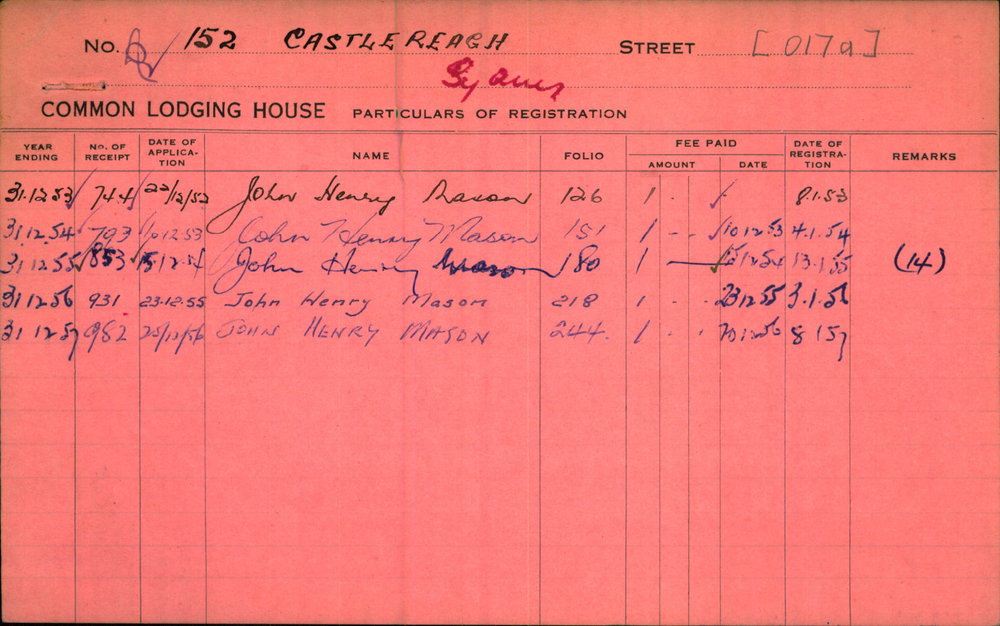 No. 152 CASTLEREAGH STREET [017a]
Sydney
COMMON LODGING HOUSE PARTICULARS OF REGISTRATION
YEAR ENDING No. OF RECEIPT DATE OF APPLICA-TION NAME FOLIO FEE PAID AMOUNT DATE DATE OF REGISTRA-TION REMARKS
31.12.53 744 22/12/52 John Henry Mason 126 1 8.1.53
31.12.54 793 10.12.53 John Henry Mason 151 1 - - 10.12.53 4.1.54
31.12.55 853 15.12.54 John Henry Mason 180 1 15.12.54 13.1.55 (14)
31.12.56 931 23.12.55 John Henry Mason 218 1 - - 23.12.55 3.1.56
31.12.57 982 JOHN HENRY MASON 244. 1 - - 8.1.57